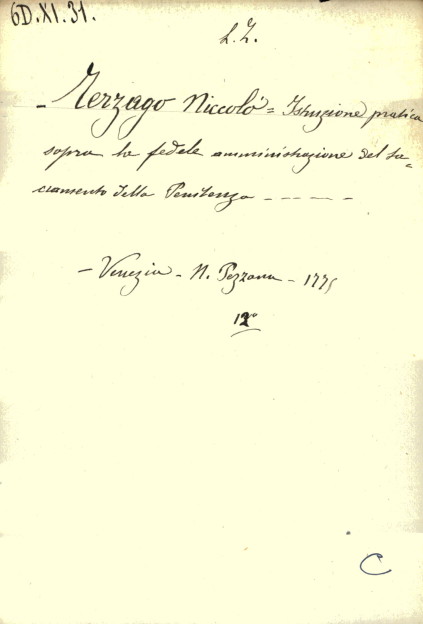 6D.XI.31.
L. Z.
- Terzago Niccolò = Istruzione pratica
sopra la fedele amministrazione del Sa-
cramento della Penitenza - - - - -
- Venezia - N. Pezzana - 1775
12º
C